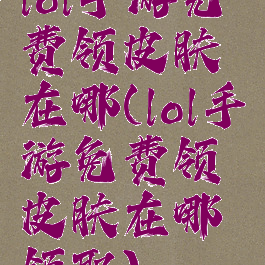 lol手游免
费领皮肤
在哪(lol手
游免费领
皮肤在哪
领取)